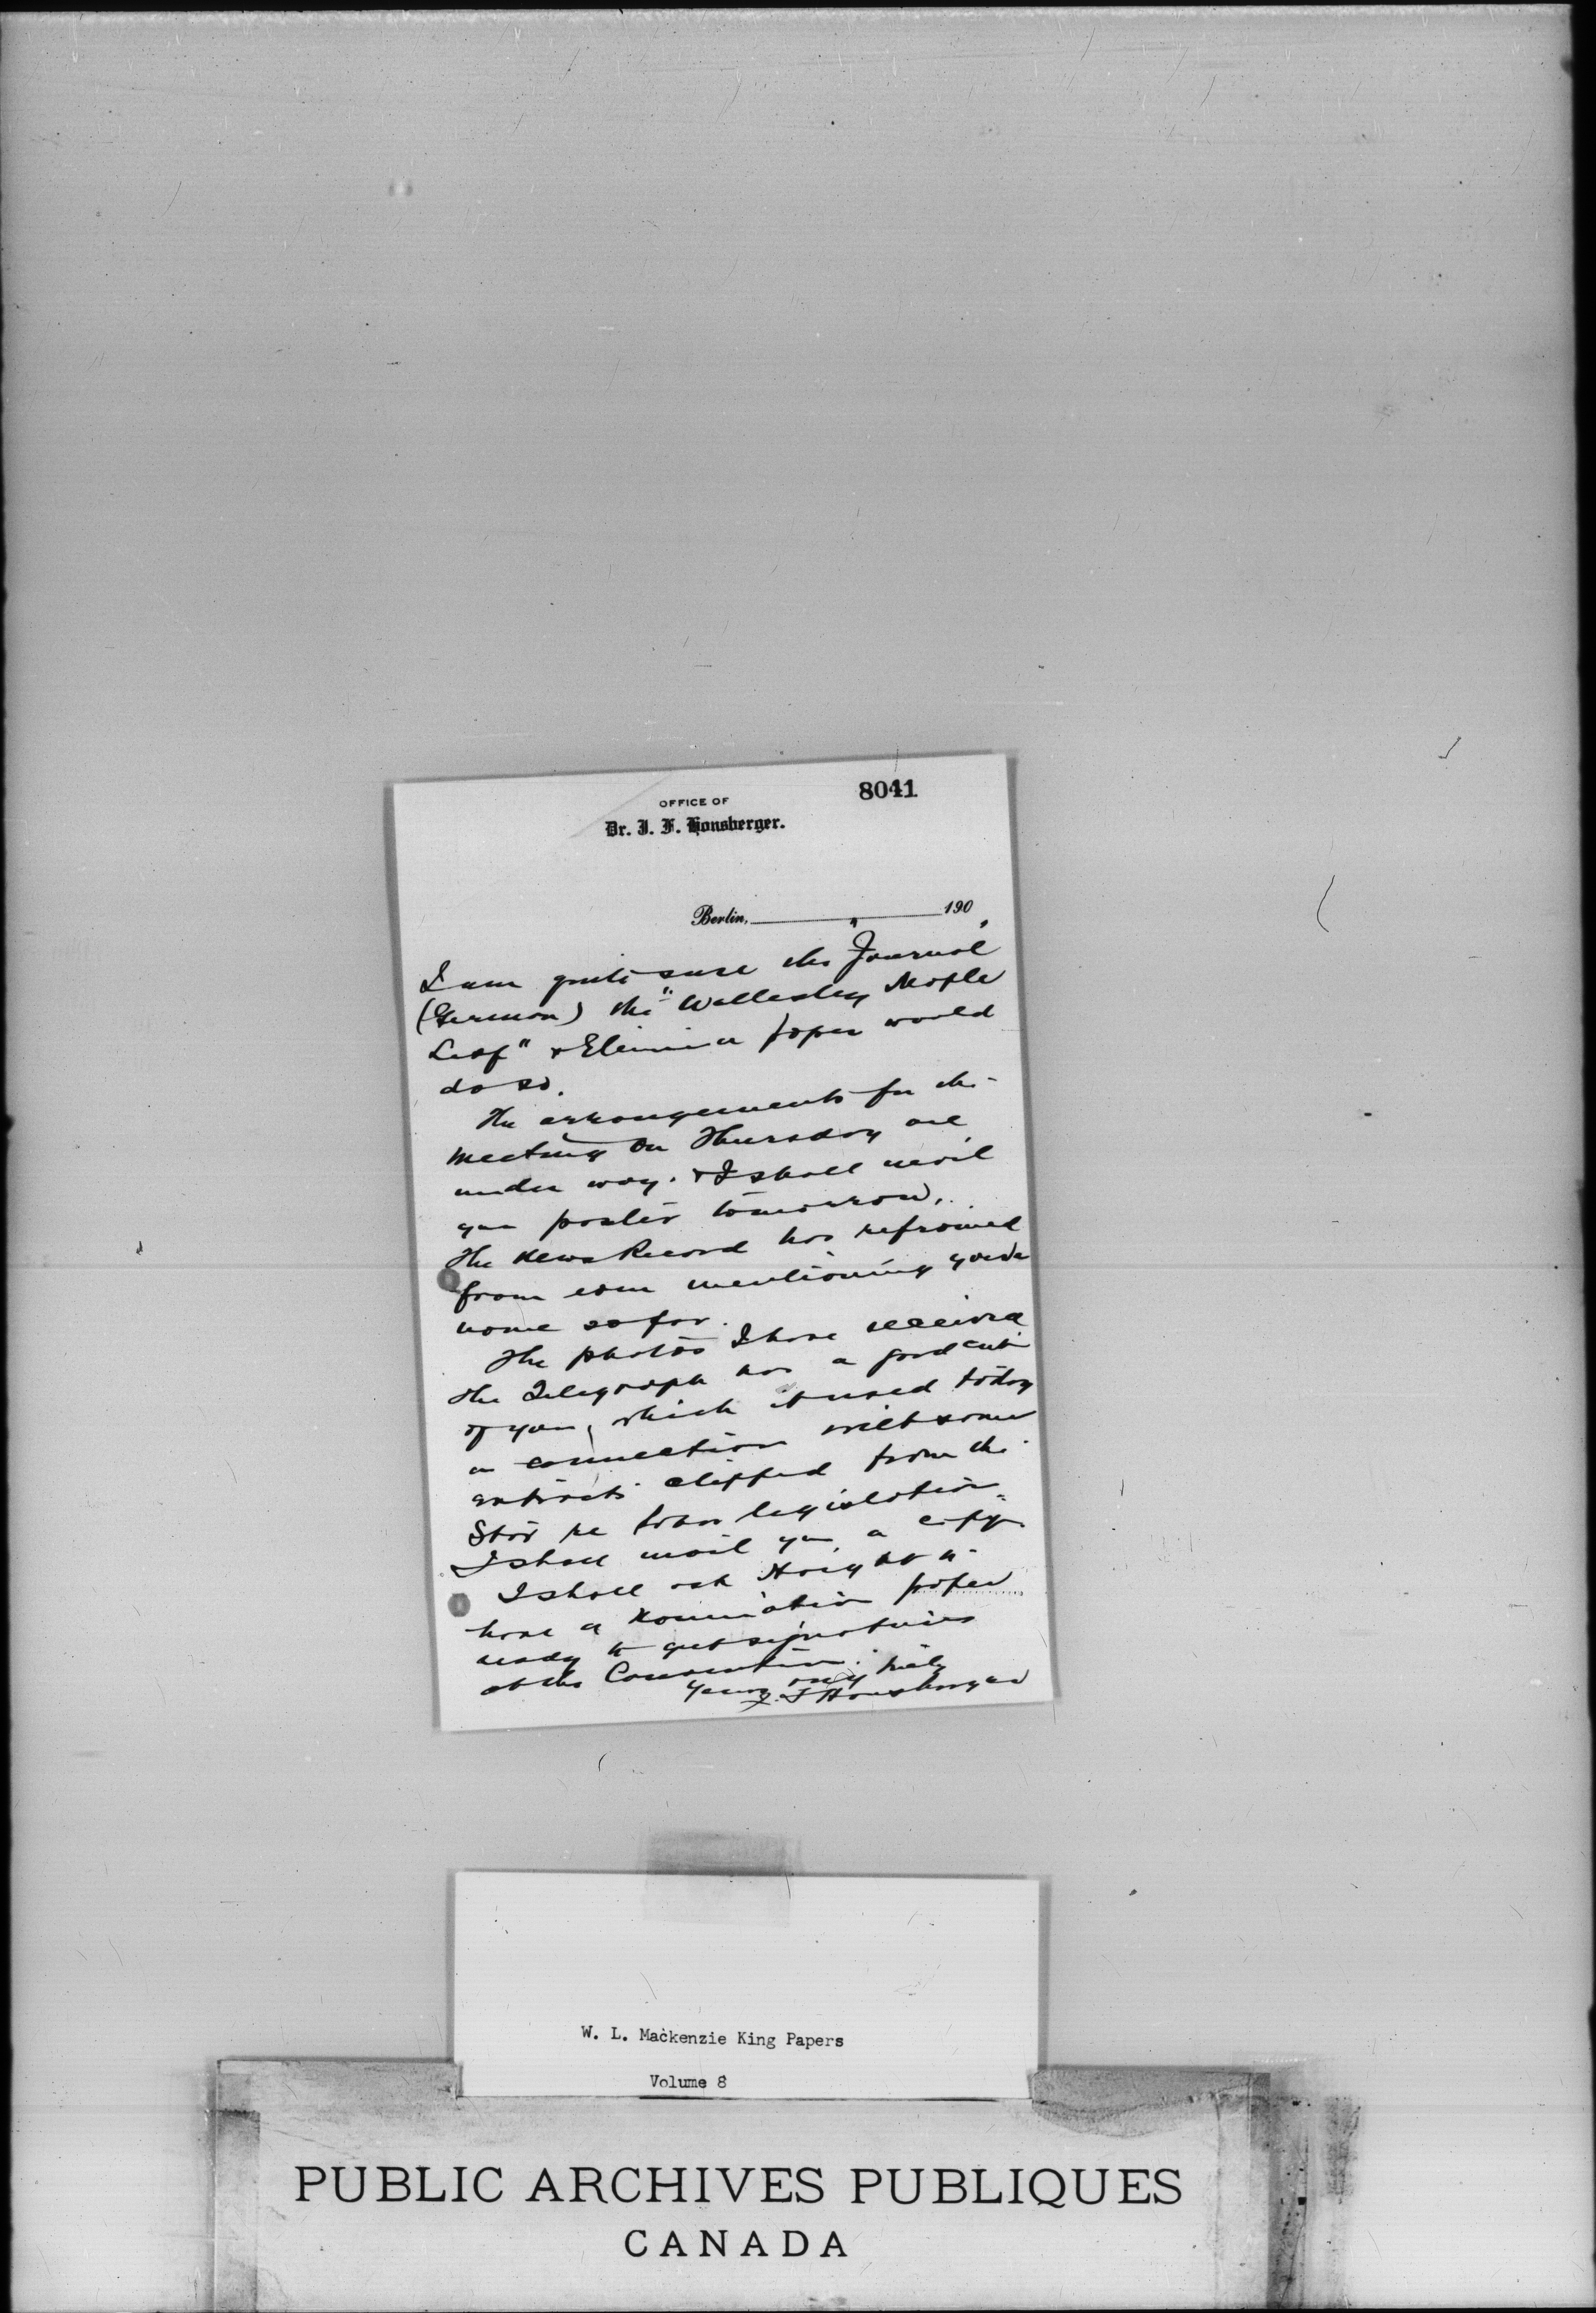 8041
OFFICE OF
Dr. J. F. Honsberger.
Berlin, 190
I am quite sure the "Journal"
(German) the "Wellesley Maple
Leaf" & Elmira paper would
do so.
The arrangements for the
meeting on Thursday are
under way. & I shall mail
you poster tomorrow.
The News Record has refrained
from even mentioning your
name so far.
The photos I have received
The Telegraph has a good cut
of you, which it used today
in connection with some
extracts clipped from the
Star re labor legislation.
I shall mail you a copy.
I shall ask Haight to
have a nomination paper
ready to get signatures
at the Convention.
Yours very truly
J. F Honsberger
W. L. Mackenzie King Papers
Volume 8
PUBLIC ARCHIVES PUBLIQUES
CANADA